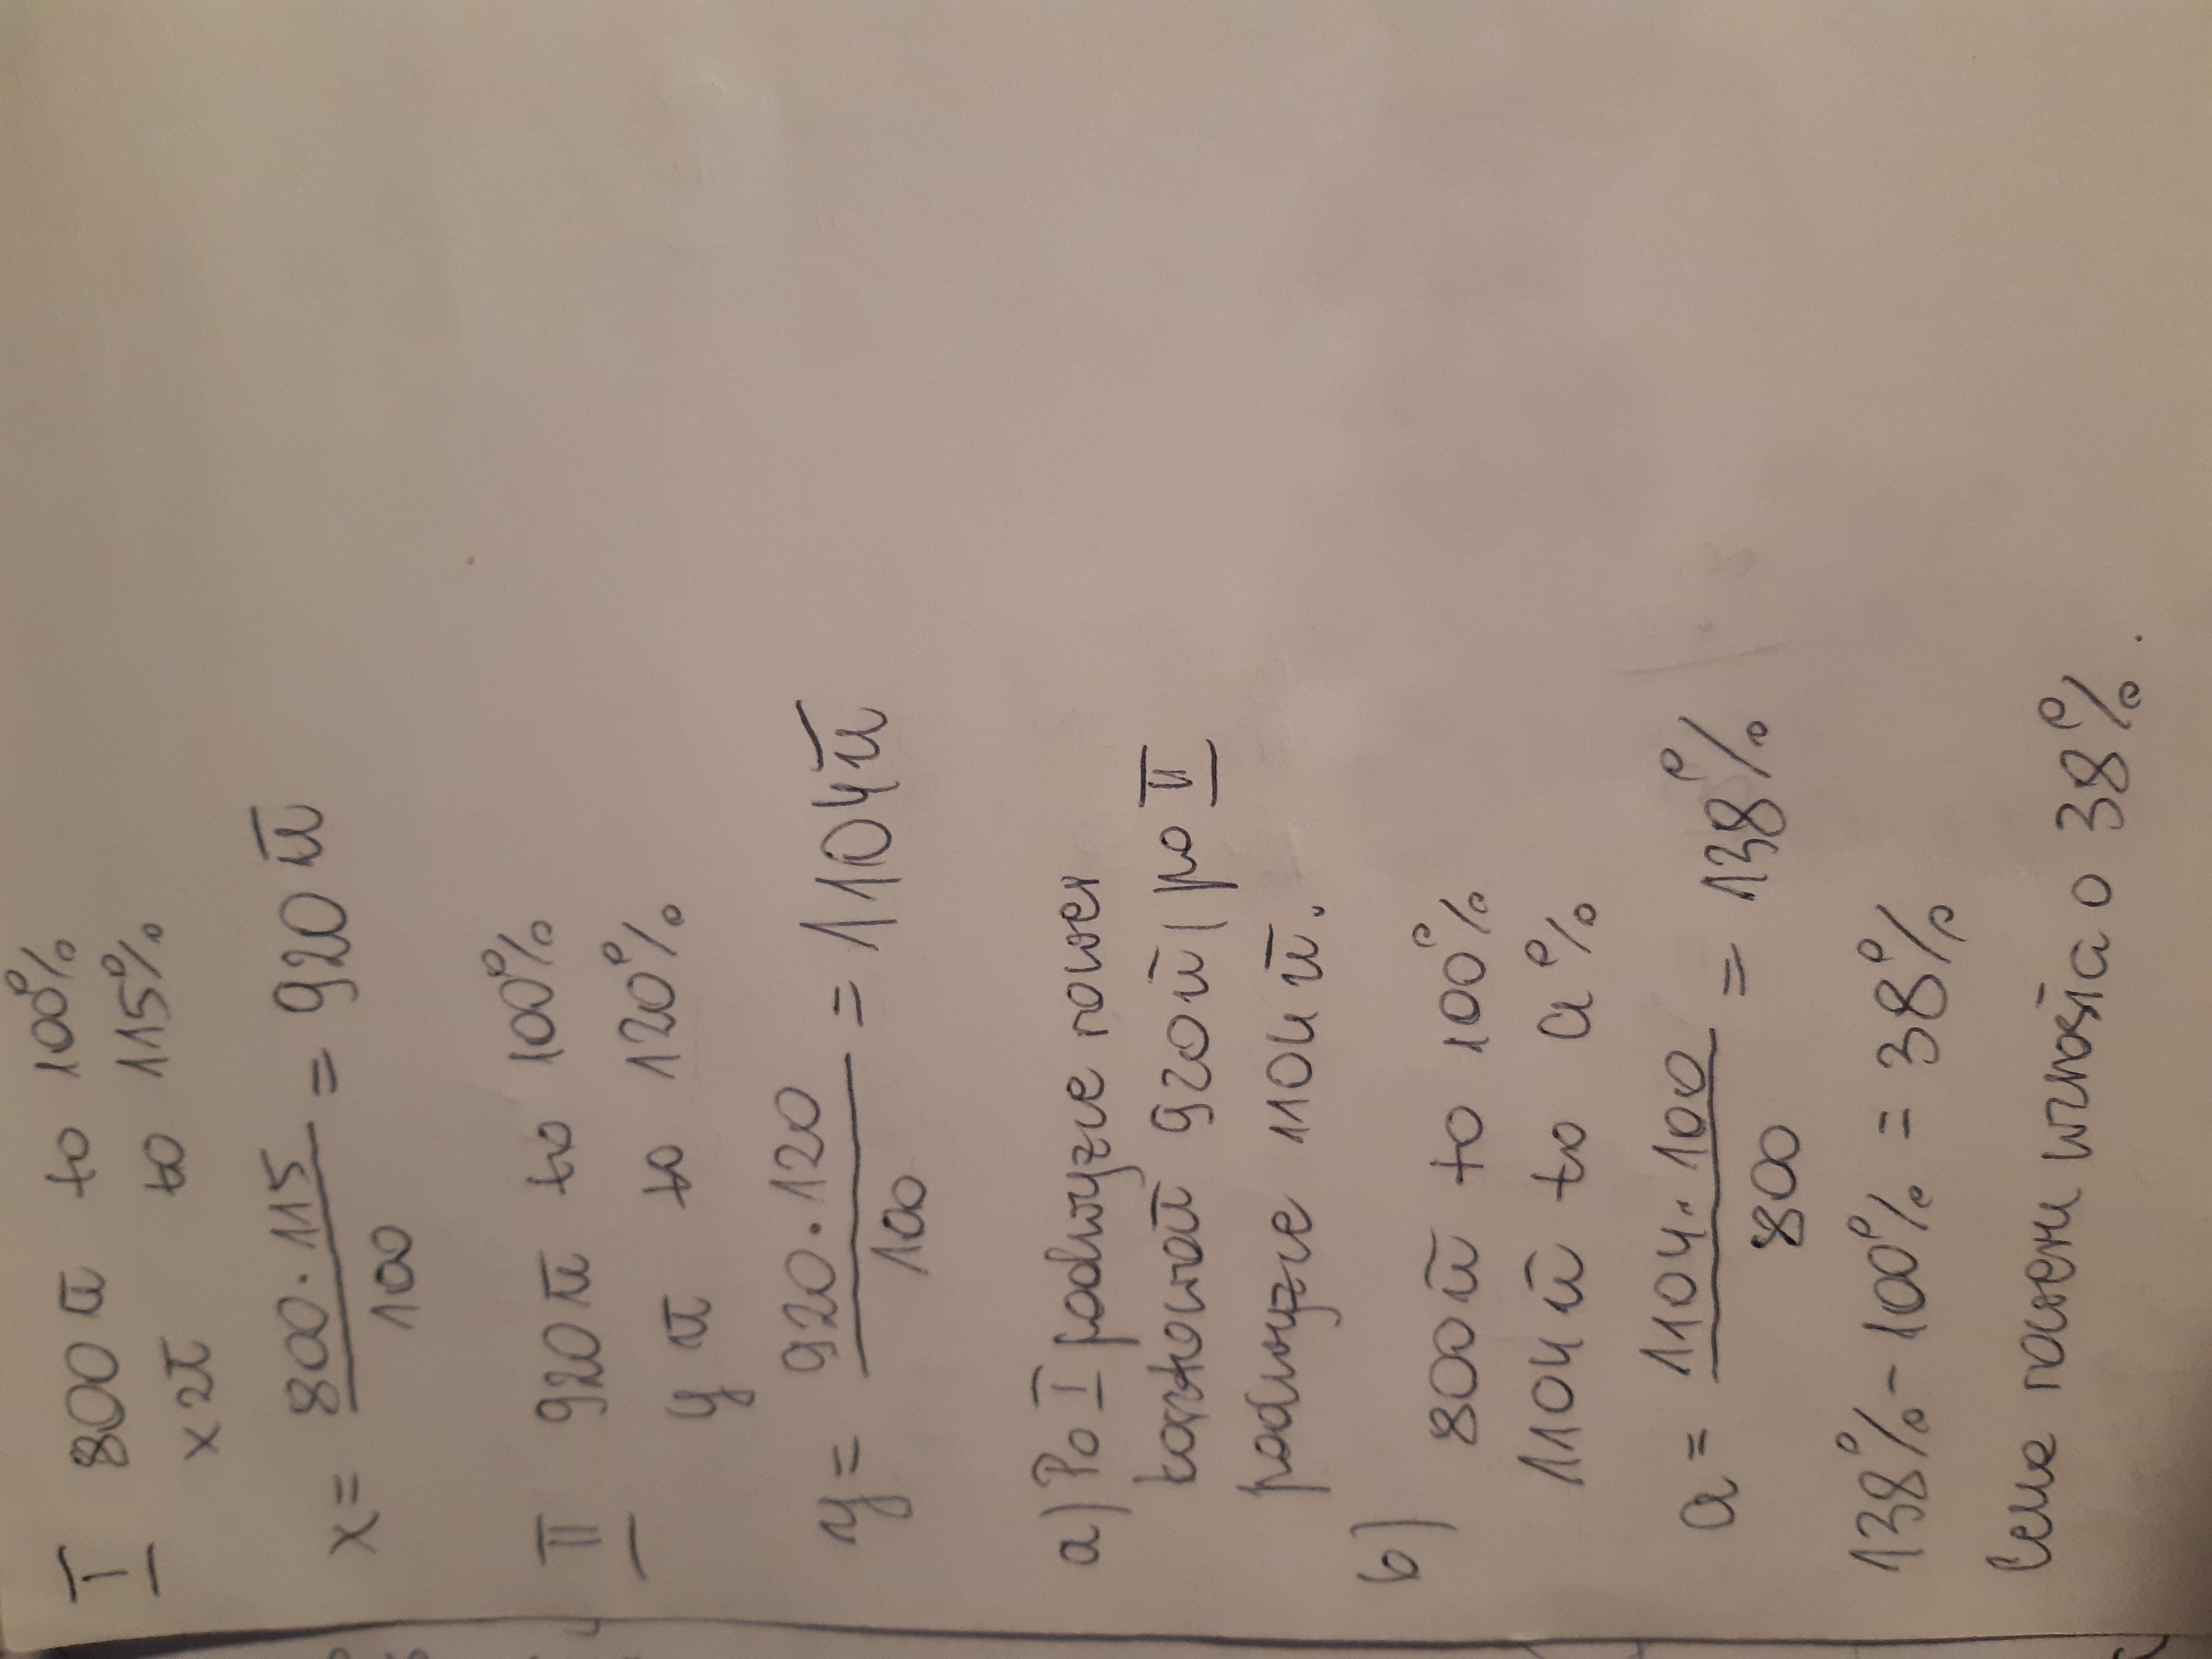 I 800 zł to 100%
x zł to 115%
x = 800 · 115 / 100 = 920 zł
II 920 zł to 100%
y zł to 120%
y = 920 · 120 / 100 = 1104 zł
a) Po I podwyżce rower
kosztował 920 zł, po II
podwyżce 1104 zł.
b)
800 zł to 100%
1104 zł to a%
a = 1104 · 100 / 800 = 138%
138% - 100% = 38%
Cena roweru wzrosła o 38%.